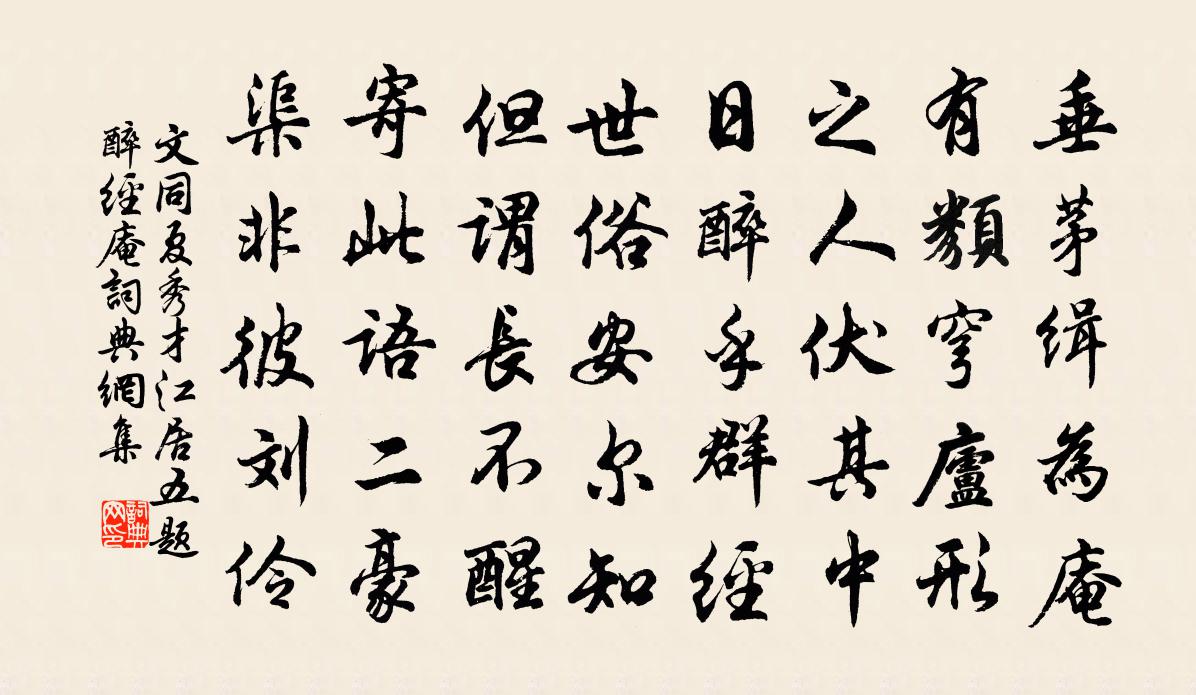 垂茅缉為庵
有類穹廬形
之人伏其中
日醉乎群經
世俗安尔知
但谓長不醒
寄此语二豪
渠非彼刘伶
文同夏秀才江居五题
醉經庵詞典網集
詞典网印